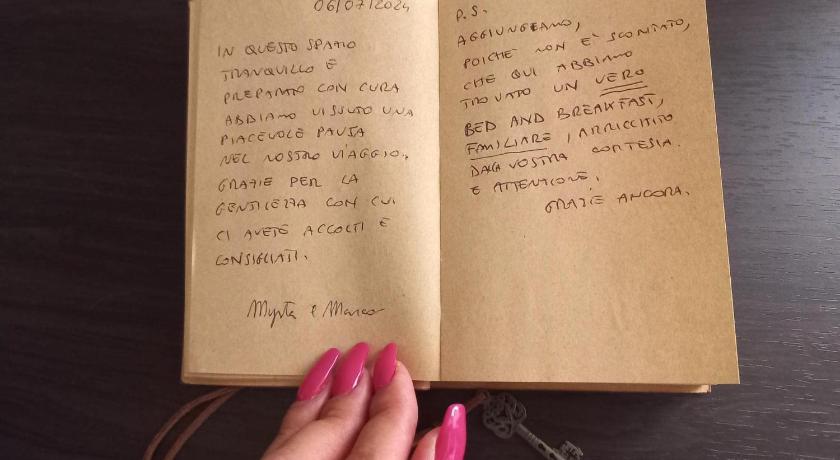 06/07/2024
IN QUESTO SPAZIO
TRANQUILLO E
PREPARATO CON CURA
ABBIAMO VISSUTO UNA
PIACEVOLE PAUSA
NEL NOSTRO VIAGGIO.
GRAZIE PER LA
GENTILEZZA CON CUI
CI AVETE ACCOLTI E
CONSIGLIATI.
Myrta e Marco
P.S.
AGGIUNGIAMO,
POICHÉ NON E' SCONTATO,
CHE QUI ABBIAMO
TROVATO UN VERO
BED AND BREAKFAST,
FAMILIARE, ARRICCHITO
DALLA VOSTRA CORTESIA
E ATTENZIONE.
GRAZIE ANCORA.